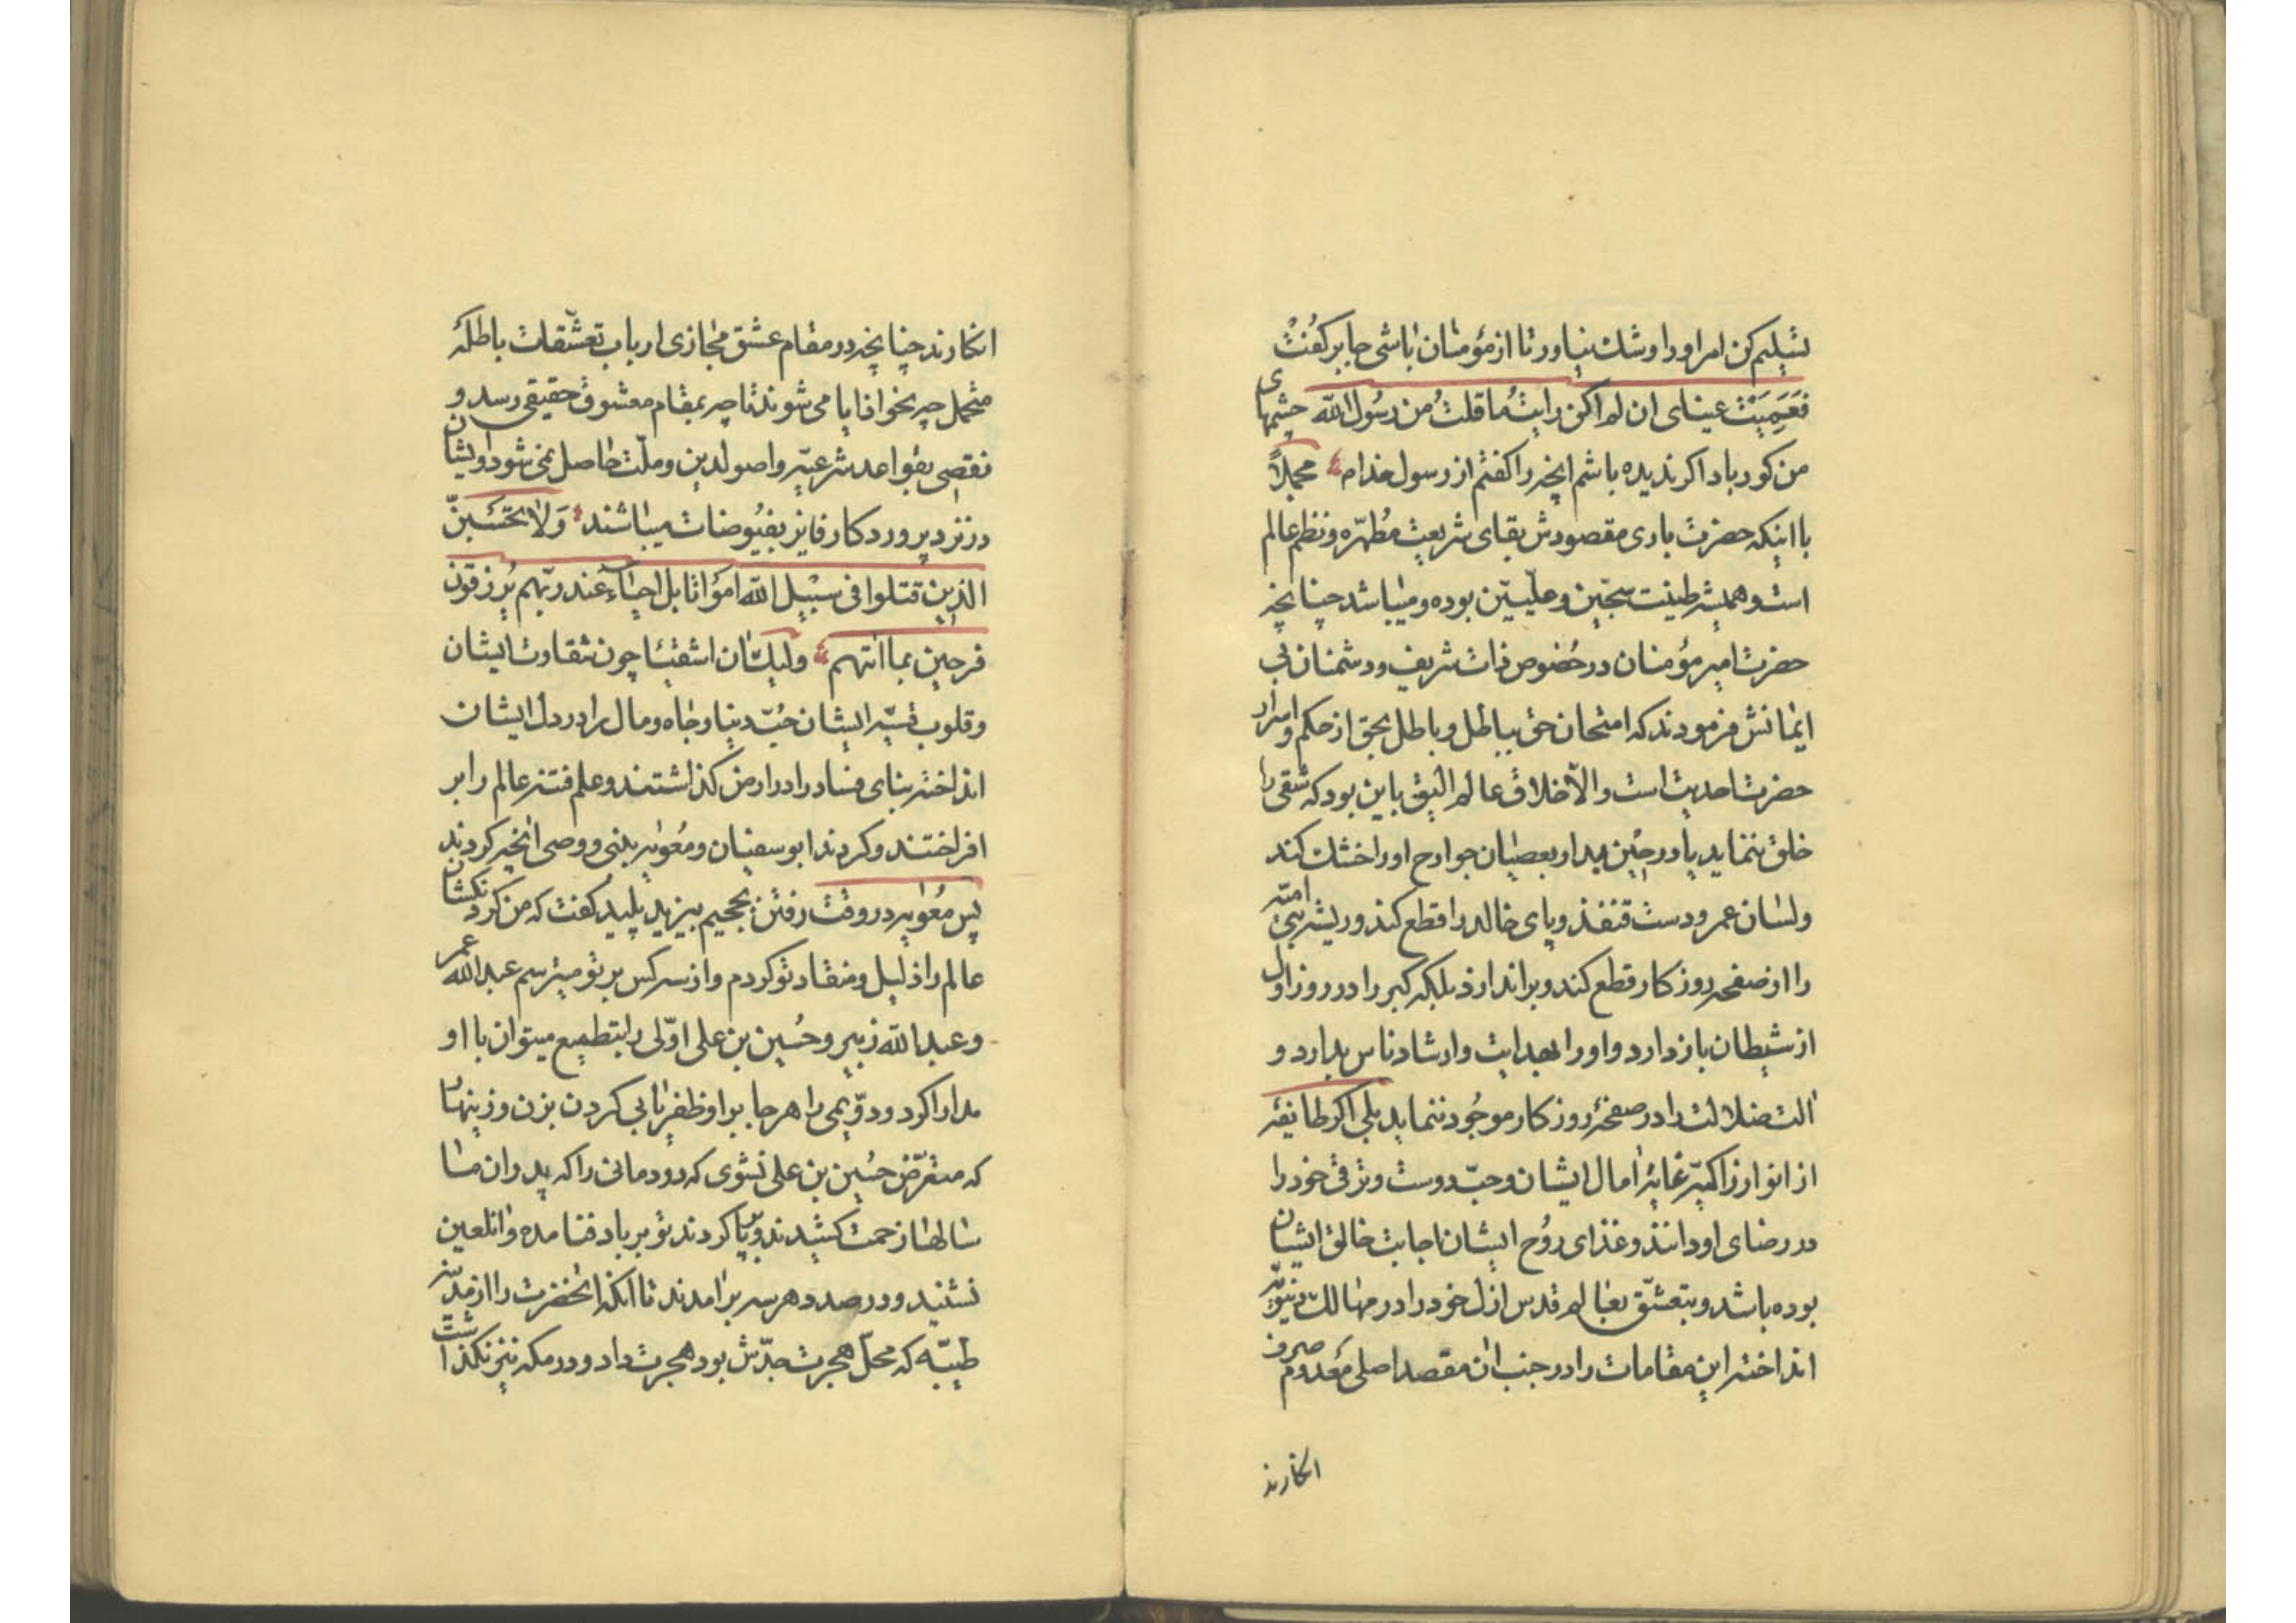 تسلیم کن امر او را و شک نیاور تا از مؤمنان باشی جابر کفت
فَعَمِیَتْ عینای ان لم اکن رایتُ ما قلتُ من رسُول الله چشمهای
من کور باد اکر ندیده باشم انچه را کفتم از رسول خدا ص مجملاً
با اینکه حضرت باری مقصودش بقای شریعت مُطهّره و نظم عالم
است و همیشه طینت سجّین و علّیّین بوده و میباشد چنانچه
حضرت امیر مؤمنان در خصُوص ذات شریف و دشمنان بی
ایمانش فرمودند که امتحان حق بباطل و باطل بحق از حکم و اسرار
حضرت احدیت است و الّا خلاق عالم الیق باین بود که شقی را
خلق ننماید یا در حین میل او بعصیان جوارح او را خشک کند
و لسان عمر و دست قنفذ و پای خالد را قطع کند و ریشه بنی امیّه
را از صفحه روزکار قطع کند و براندازد بلکه کبر را در روز اول
از شیطان باز دارد و او را بهدایت و ارشاد ناس بدارد و
الت ضلالت را در صفحهٔ روزکار موجُود ننماید بلی اکر طایفه
از انوار زاکیّه غایهٔ امال ایشان و حبّ دوست و ترقی خود را
در رضای او دانند و غذای روُح ایشان اجابت خالق ایشان
بوده باشد و بتعشّق بعالم قدس ازل خود را در مهالک دنیویّه
انداخته این مقامات را در جنب ان مقصد اصلی معدوم صرف
انکارند
انکارند چنانچه در مقام عشق مجازی ارباب تعشّقات باطلهٔ
متحمل چه نحو افایا می شوند تا چه بمقام معشوق حقیقی رسد و
نقصی بقواعد شرعیّه و اصول دین و ملّت حاصل نمی شود و ایشان
در نزد پروردکار فایز بفیُوضات میباشند وَ لا تحسَبنّ
الذین قتلوا فی سبیل الله امواتا بل احیاء عند ربّهم یُرزقون
فرحین بما اتٰیهم و لیک ان اشقیا چون شقاوت ایشان
و قلوب قسیّه ایشان حُبّ دنیا و جاه و مال را در دل ایشان
انداخته بنای فساد را در ارض کذاشتند و علم فتنه عالم را بر
افراختند و کردند ابوسفیان و مُعویه بنبی و وصی انچه کردند
پس مُعویه در وقت رفتن بجحیم بیزید پلید کفت که من کردنکشان
عالم را ذلیل و منقاد تو کردم و از سه کس بر تو میترسم عبدالله عمر
و عبدالله زبیر و حُسین بن علی اوّلی را بتطمیع میتوان با او
مدارا کرد و دوّیمی را هر جا بر او ظفر یابی کردن بزن و زینهار
که متعرّض حسُین بن علی نشوی که دودمانی را که پدران ما
سالها زحمت کشیدند و برپا کردند تو بر باد فنا مده و انلعین
نشنید و در صدد هر سه برامدند تا انکه انحضرت را از مدینه
طیبّه که محلّ هجرت جدّش بود هجرت داد و در مکه نیز نکذاشت